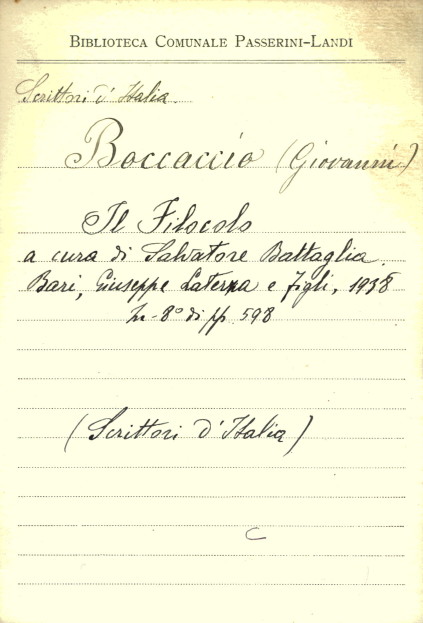 BIBLIOTECA COMUNALE PASSERINI-LANDI
Scrittori d'Italia.
Boccaccio (Giovanni)
Il Filocolo
a cura di Salvatore Battaglia.
Bari, Giuseppe Laterza e figli, 1938
In-8° di pp. 598
(Scrittori d'Italia)
C